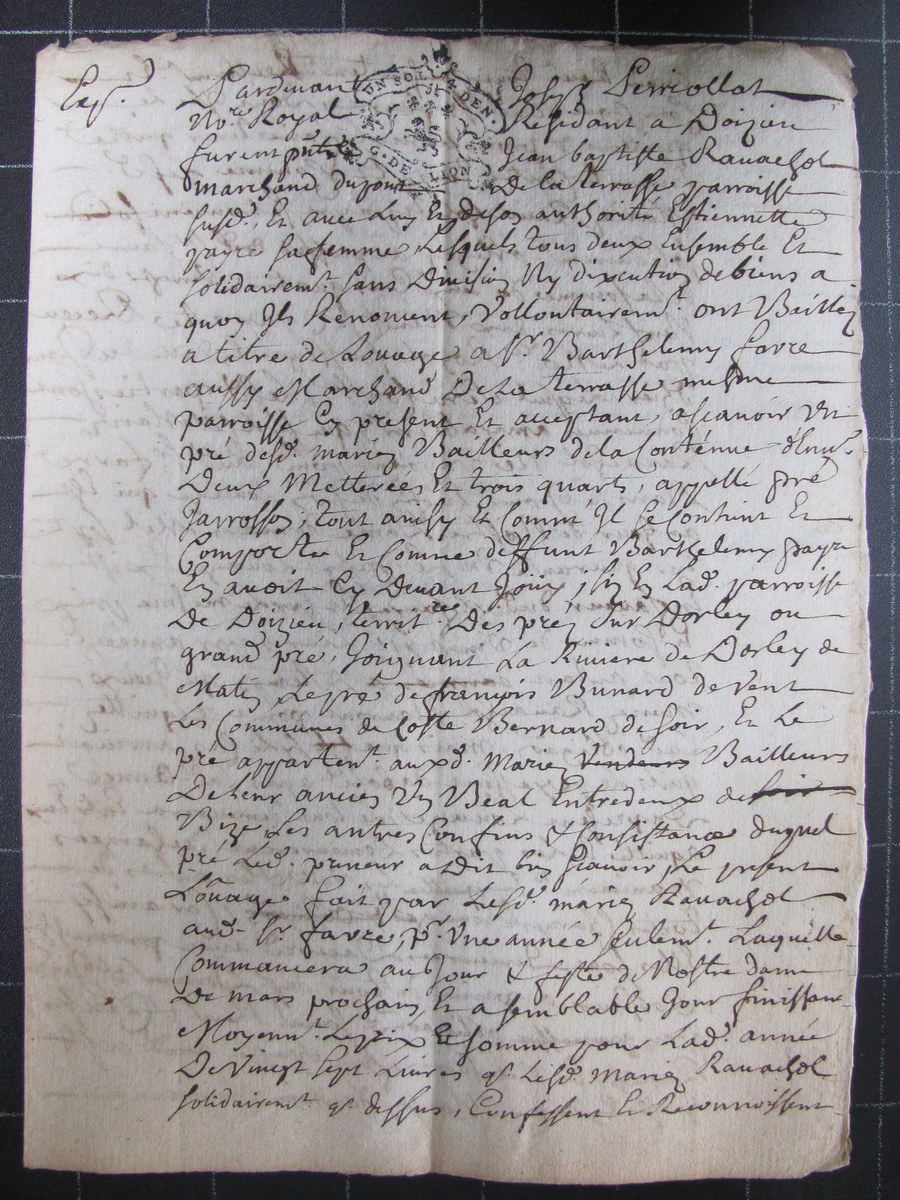 Exp.
Pardevant Joseph Perriollat
No.re Royal Residant a Doizieu
furent pnts Jean baptiste Ravachol
marchand du pont De la terrasse parroisse
susd., Et avec Luy Et de son authorité Estiennette
payre sa femme, Lesquels tous deux Ensemble Et
solidairemt. sans Division Ny dixcution de biens a
quoy Ils Renoncent, Vollontairemt. ont Baillez
a titre de Louage a Sr. Barthelemy favre
aussy Marchand De La terrasse mesme
parroisse Cy present Et acceptant, ascavoir Un
pré desd. mariez Bailleurs de la Contenue
Deux Metterées Et trois quarts, appellé pré
Jarrosson, tout ainsy Et Comm' Il se Contient Et
Comporte Et Comme deffunt Barthelemy payre
En avoit Cy Devant Jouy, sis En Lad. parroisse
De Doizieu, territ.re Des prés sur Dorley ou
grand pré, Joignant La Riviere de Dorley de
Matin, Le pré de françois Bunard de Vent
Les Communes de Coste Bernard de soir, Et Le
pré appartent. auxd. Mariez Vendeurs Bailleurs
De leur ancien Un Béal Entredeux de soir
Bize Les autres Confins & Consistance duquel
pré Led. preneur a Dit bien scavoir, Le present
Louage fait par Lesd. mariez Ravachol
aud. Sr. favre, pr. Une année seulemt. Laquelle
Commancera au Jour & feste de Nostre dame
De mars prochain, Et a semblable Jour finissant
Moyennt. Le prix Et somme pour Lad. année
De Vingt sept Livres qe. Lesd. Mariez Ravachol
solidairemt. qe. dessus, Confessent Et Reconnoissent
UN SOL 4 DEN.
G. DE LION